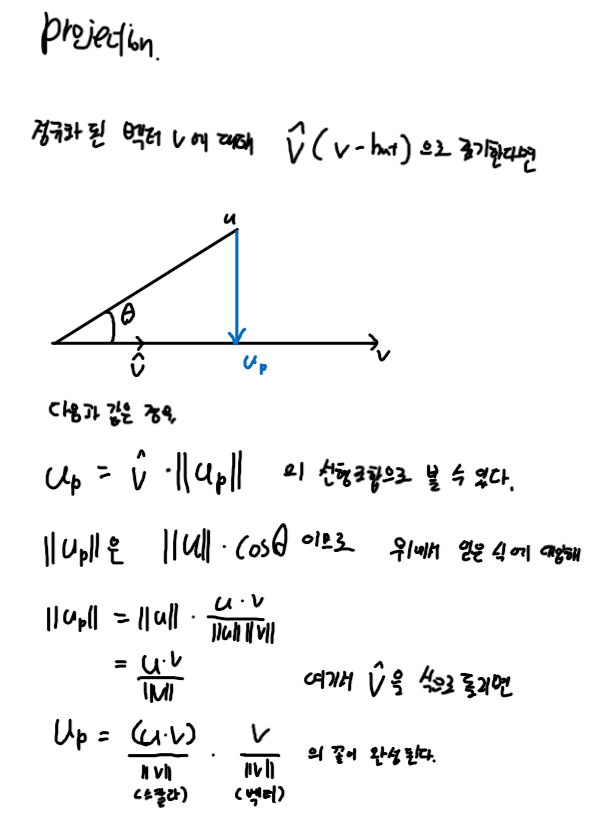 projection.
정규화 된 벡터 v에 대해 v̂ (v-hat)으로 표기한다면
u
θ
v̂
u_p
v
다음과 같은 경우,
u_p = v̂ · ||u_p|| 의 선형조합으로 볼 수 있다.
||u_p||은 ||u|| · cosθ 이므로 위에서 얻은 식에 대입해
||u_p|| = ||u|| · (u · v) / (||u|| ||v||)
= (u · v) / ||v|| 여기서 v̂을 식으로 돌리면
u_p = (u · v) / ||v|| · v / ||v|| 의 꼴이 완성된다.
(스칼라) (벡터)